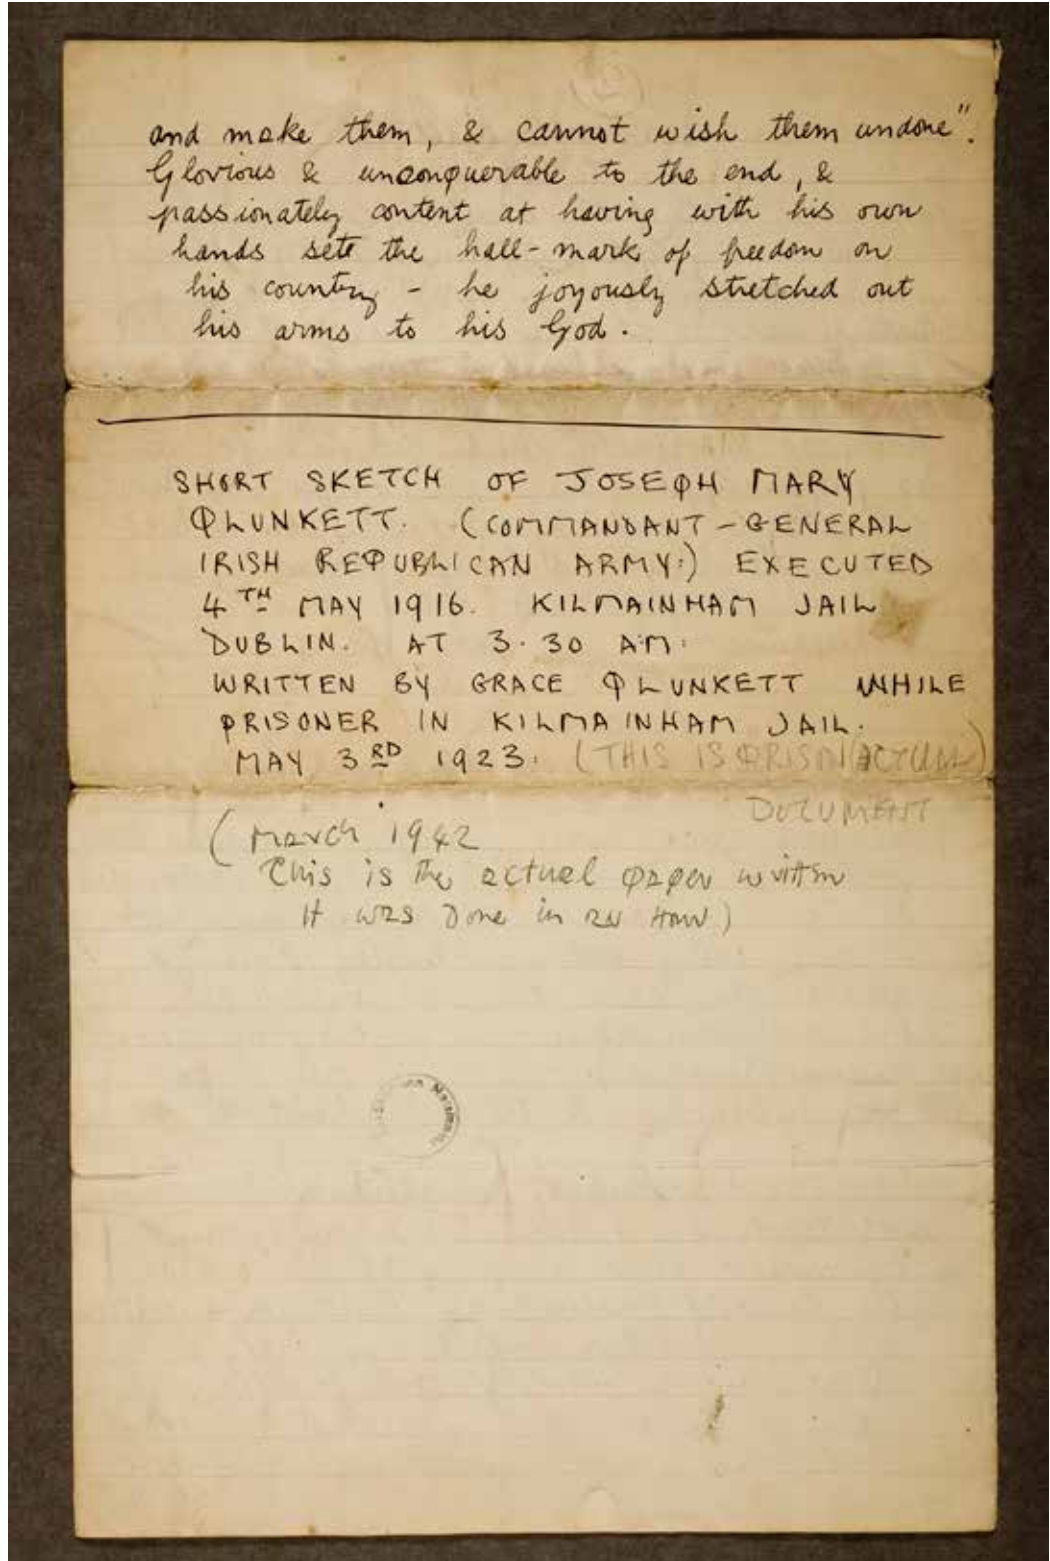 and make them, & cannot wish them undone".
Glorious & unconquerable to the end, &
passionately content at having with his own
hands sett the hall-mark of freedom on
his country - he joyously stretched out
his arms to his God.
SHORT SKETCH OF JOSEPH MARY
PLUNKETT. (COMMANDANT-GENERAL
IRISH REPUBLICAN ARMY.) EXECUTED
4TH MAY 1916. KILMAINHAM JAIL
DUBLIN. AT 3.30 AM.
WRITTEN BY GRACE PLUNKETT WHILE
PRISONER IN KILMAINHAM JAIL.
MAY 3RD 1923. (THIS IS PRISON (ACTUAL)
DOCUMENT
(March 1942
This is the actual paper written
It was Done in an Hour)